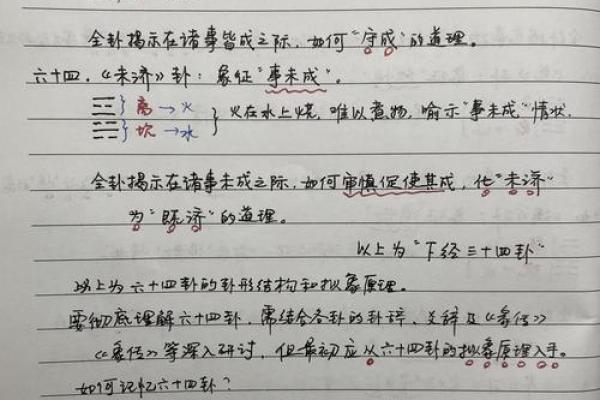 全卦揭示在诸事皆成之际,如何“守成”的道理。
六十四.《未济》卦:象征“事未成”。
离→火
坎→水
火在水上烧,难以煮物,喻示“事未成”情状.
全卦揭示在诸事未成之际,如何审慎促使其成,化“未济”
为“既济”的道理。
以上为“下经三十四卦”
以上为六十四卦的卦形结构和拟象原理。
要彻底理解六十四卦,需结合各卦的卦辞、爻辞及《彖传》
《象传》等深入研讨,但最初应从六十四卦的拟象原理入手。
如何记忆六十四卦?